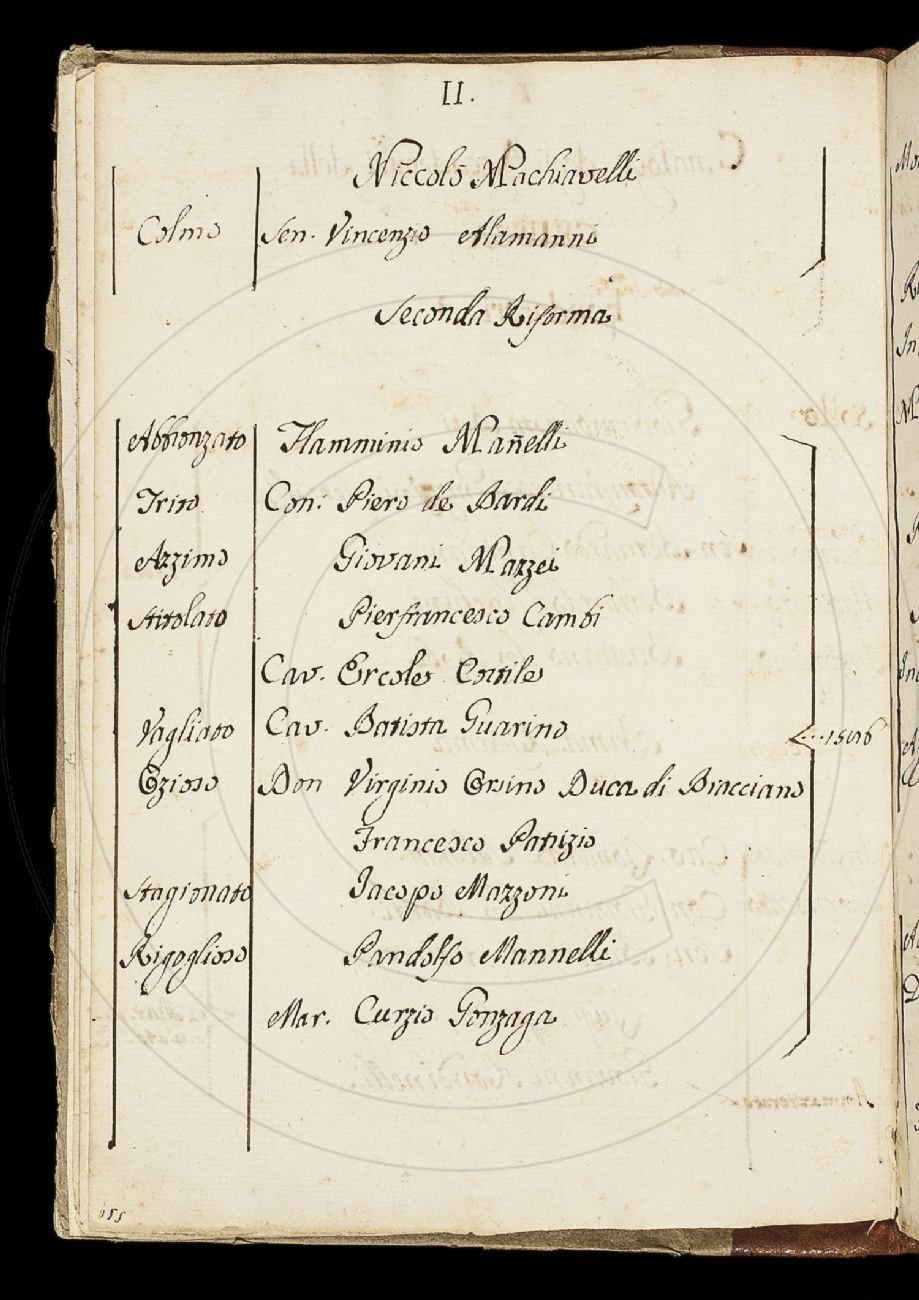 II.
Niccolò Machiavelli
Colmo Sen. Vincenzio Alamanni
Seconda Riforma
Abbronzato Flamminio Mañelli
Trito Con: Piero de Bardi
Azzimo Giovani Mazzei
Stitolato Pierfrancesco Cambi
Cav. Ercole Cortile
Vagliato Cav. Batista Guarino
Ozioso Don Virginio Orsino Duca di Bracciano
Francesco Patrizio
Stagionato Iacopo Mazzoni
Rigoglioso Pandolfo Mannelli
Mar. Curzio Gonzaga